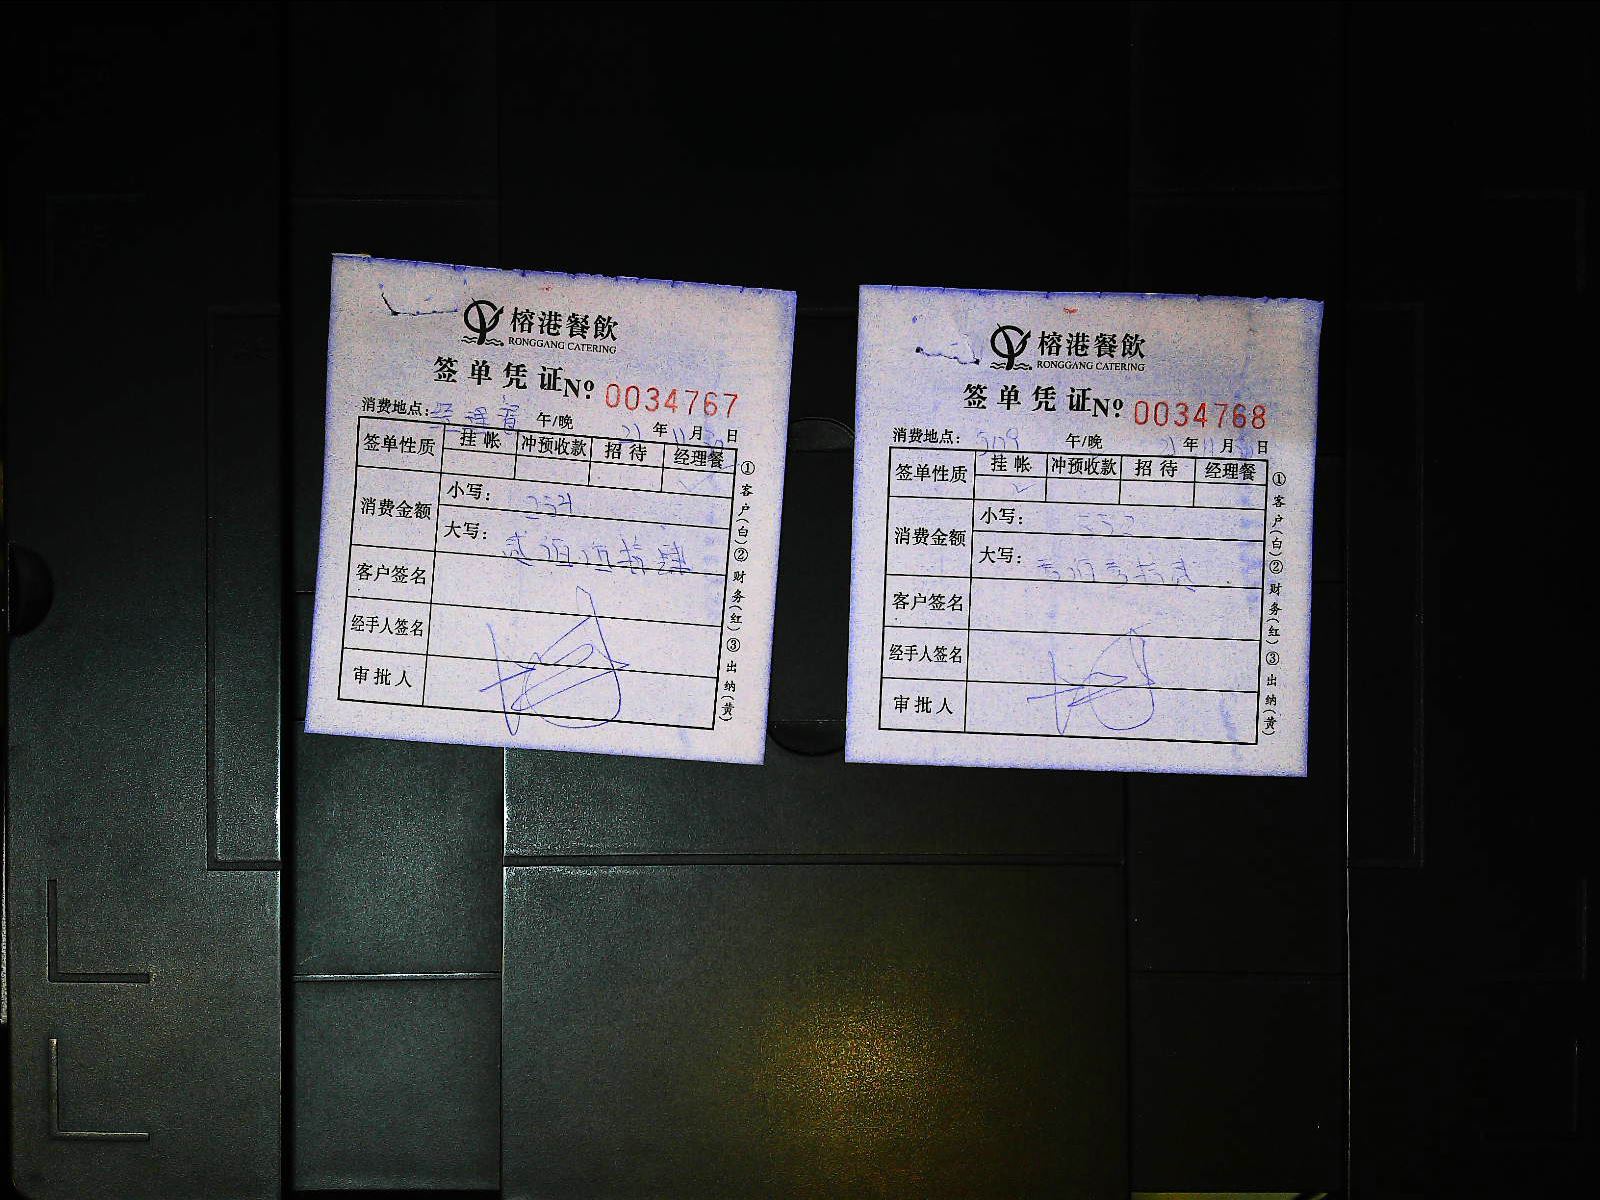 榕港餐飲
RONGGANG CATERING
签单凭证 № 0034767
消费地点：经理餐 午/晚 21年11月30日
签单性质 挂帐 冲预收款 招待 经理餐
✓
消费金额 小写：254
大写：贰佰伍拾肆
客户签名
经手人签名
审批人
①客户(白)②财务(红)③出纳(黄)
榕港餐飲
RONGGANG CATERING
签单凭证 № 0034768
消费地点： 午/晚 21年11月日
签单性质 挂帐 冲预收款 招待 经理餐
✓
消费金额 小写：
大写：
客户签名
经手人签名
审批人
①客户(白)②财务(红)③出纳(黄)